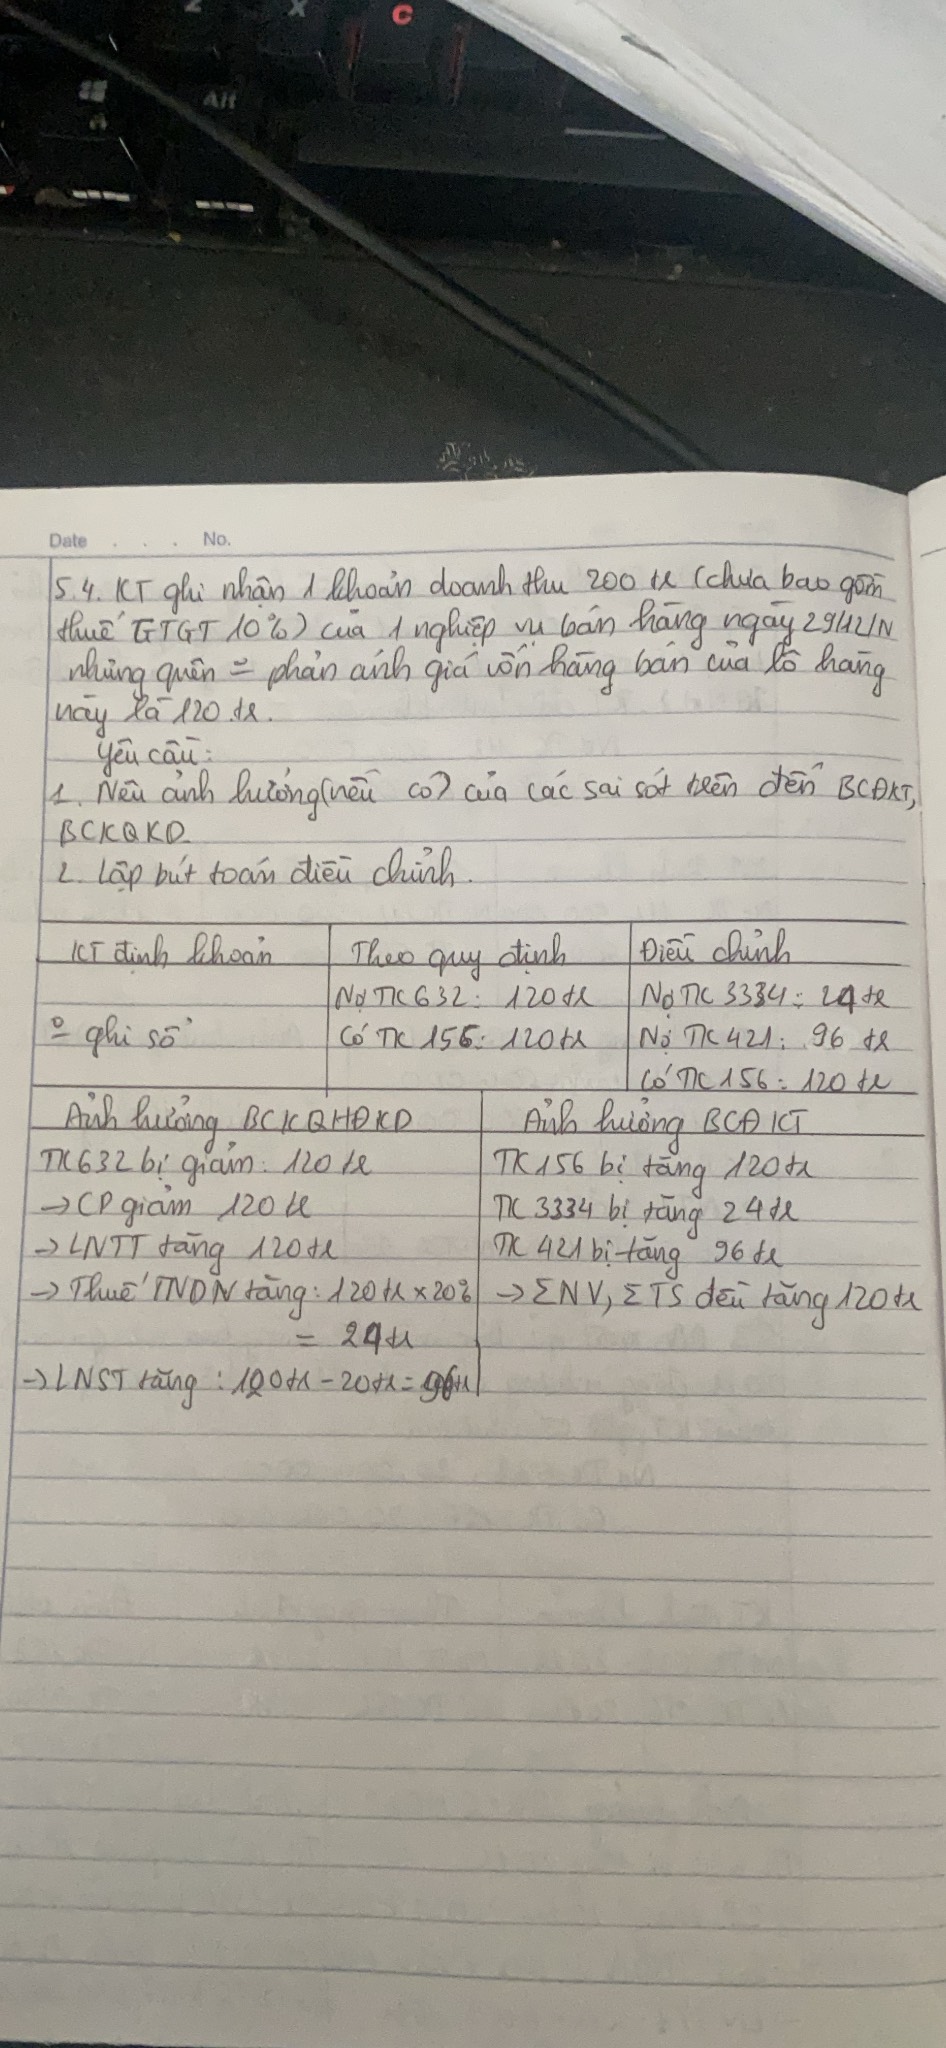 Z X C
Alt
Date . . . No.
5.4. KT ghi nhận 1 khoản doanh thu 200 tr (chưa bao gồm
thuế GTGT 10%) của 1 nghiệp vụ bán hàng ngày 29/12/N
nhưng quên = phản ánh giá vốn hàng bán của lô hàng
này là 120 tr.
Yêu cầu:
1. Nêu ảnh hưởng (nếu có) của các sai sót trên đến BCĐKT,
BCKQKD.
2. Lập bút toán điều chỉnh.
KT định khoản Theo quy định Điều chỉnh
Nợ TK 632: 120 tr Nợ TK 3334: 24 tr
ghi sổ Có TK 156: 120 tr Nợ TK 421: 96 tr
Có TK 156: 120 tr
Ảnh hưởng BCKQHĐKD Ảnh hưởng BCĐKT
TK 632 bị giảm: 120 tr TK 156 bị tăng 120 tr
→ CP giảm 120 tr TK 3334 bị tăng 24 tr
→ LNTT tăng 120 tr TK 421 bị tăng 96 tr
→ Thuế TNDN tăng: 120 tr × 20% → ΣNV, ΣTS đều tăng 120 tr
= 24 tr
→ LNST tăng: 120 tr - 20 tr = 96 tr